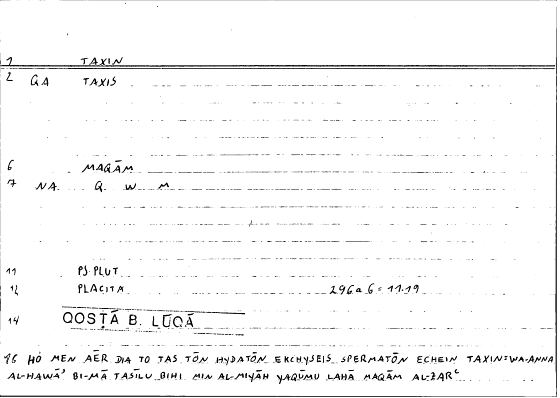 1 TAXIN
2 GA TAXIS
6 MAQĀM
7 NA Q W M
11 PS.PLUT
12 PLACITA 296a6=11.19
14 QOSṬĀ B. LŪQĀ
16 HO MEN AĒR DIA TO TAS TŌN HYDATŌN EKCHYSEIS SPERMATŌN ECHEIN TAXIN=WA-ANNA
AL-HAWĀʾ BI-MĀ TASĪLU BIHI MIN AL-MIYĀH YAQŪMU LAHĀ MAQĀM AL-ZARʿ